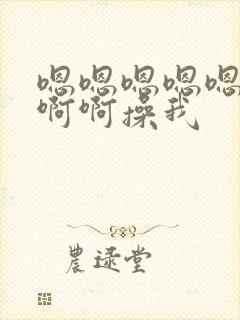 嗯嗯嗯嗯嗯
啊啊操我
農逯堂